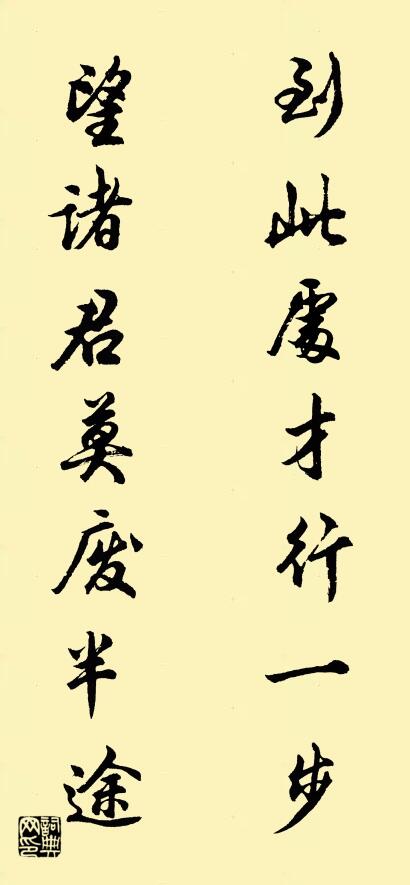 到此處才行一步
望诸君莫废半途